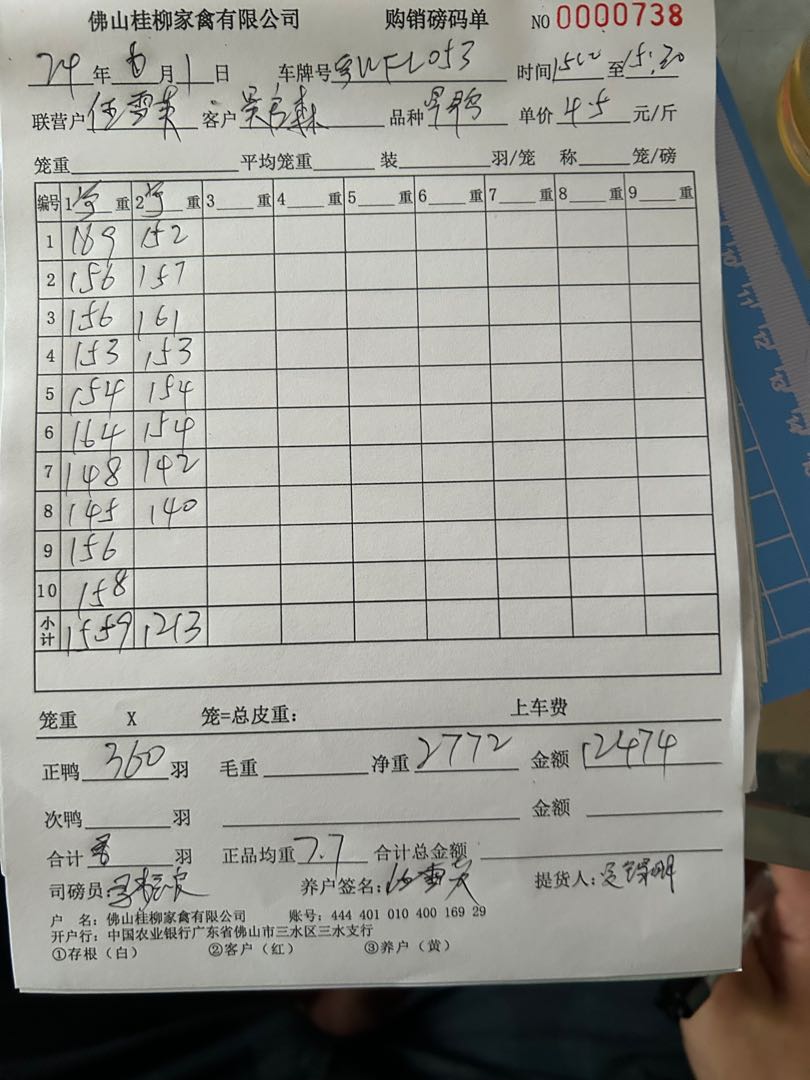 佛山桂柳家禽有限公司 购销磅码单 NO 0000738
24 年 6 月 1 日 车牌号 WFL053 时间 1500 至 15:30
联营户 任雪英 客户 品种 单价 4.5 元/斤
笼重 平均笼重 装 羽/笼 称 笼/磅
编号 1 重 2 重 3 重 4 重 5 重 6 重 7 重 8 重 9 重
1 169 152
2 156 157
3 156 161
4 153 153
5 154 154
6 164 154
7 148 142
8 145 140
9 156
10 158
小计 1559 1213
笼重 X 笼=总皮重: 上车费
正鸭 360 羽 毛重 净重 2772 金额 12474
次鸭 羽 金额
合计 羽 正品均重 7.7 合计总金额
司磅员: 养户签名: 提货人:
户 名: 佛山桂柳家禽有限公司 账号: 444 401 010 400 169 29
开户行: 中国农业银行广东省佛山市三水区三水支行
①存根（白） ②客户（红） ③养户（黄）